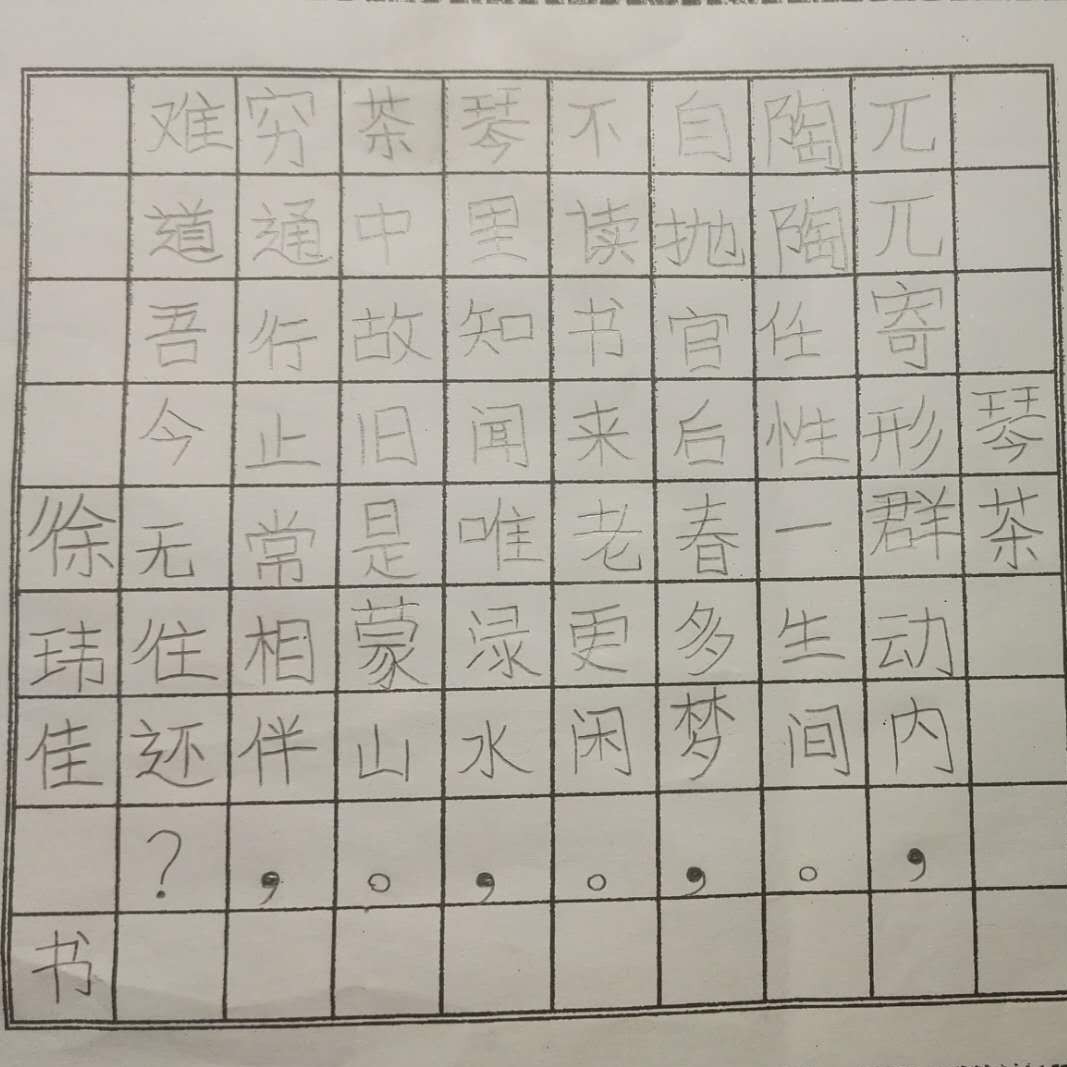 琴茶
兀兀寄形群动内，
陶陶任性一生间。
自抛官后春多梦，
不读书来老更闲。
琴里知闻唯渌水，
茶中故旧是蒙山。
穷通行止常相伴，
难道吾今无往还？
徐玮佳书